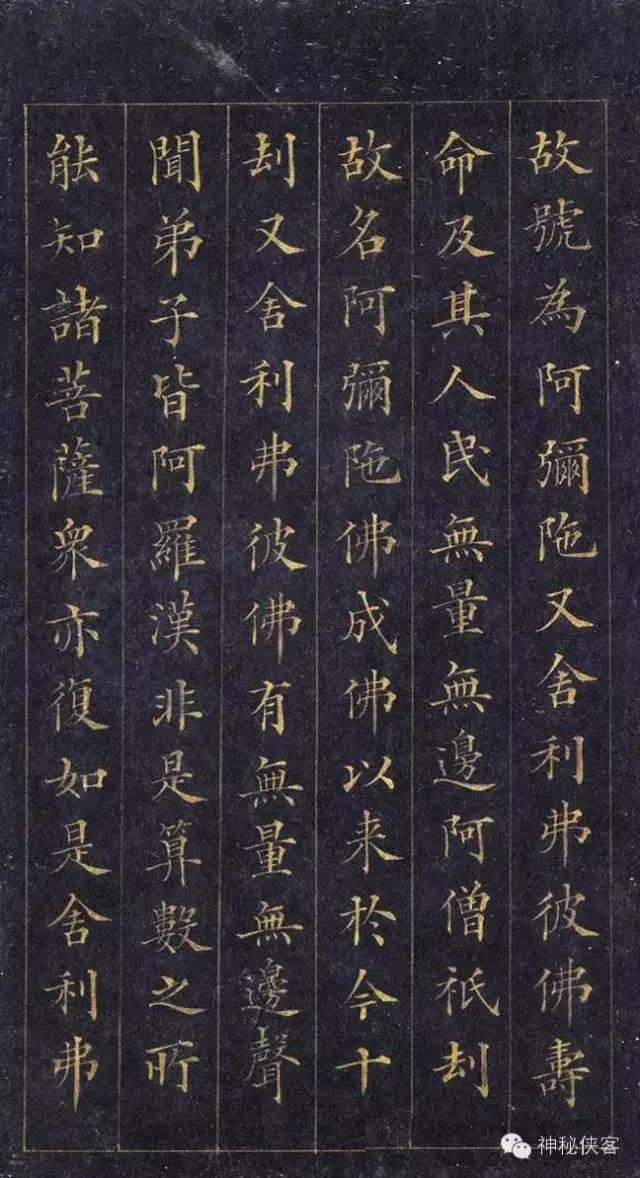 故號為阿彌陁又舍利弗彼佛壽
命及其人民無量無邊阿僧祇刦
故名阿彌陁佛成佛以来於今十
刦又舍利弗彼佛有無量無邊聲
聞弟子皆阿羅漢非是算數之所
能知諸菩薩衆亦復如是舍利弗
神秘侠客